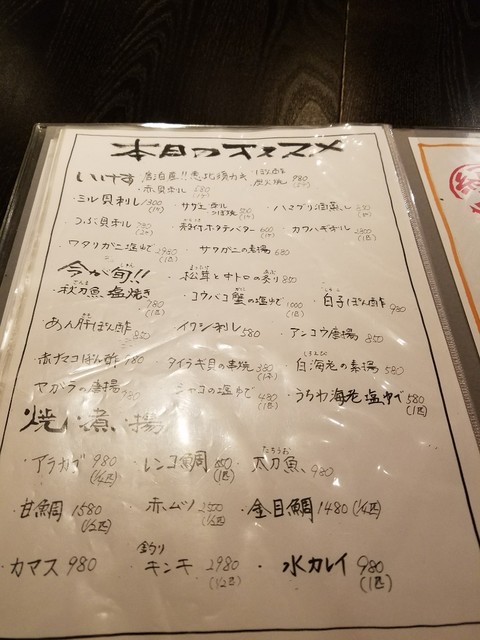 本日のオススメ
いけす
ぽん酢
炭火焼 980
・赤貝刺し
・ミル貝刺し 1300
・サザエ 刺し つぼ焼
・ハマグリ酒蒸し
・つぶ貝刺し
・殻付ホタテバター
・カワハギ刺し
・ワタリガニ塩ゆで 2980 (1匹)
・サワガニの素揚 680
今が旬!!
・松茸と中トロの炙り 850
・秋刀魚塩焼き 780 (1匹)
・コウバコ蟹の塩ゆで 1000 (1匹)
・白子ぽん酢 980
・あん肝ぽん酢 850
・イワシ刺し 580
・アンコウ唐揚 850
・赤ナマコぽん酢 780
・タイラギ貝の串焼 380 (1本)
・白海老の素揚 580
・ヤガラの唐揚
・シャコの塩ゆで 480 (1匹)
・うちわ海老塩ゆで 580 (1匹)
焼・煮・揚
・アラカブ 980 (1/4匹)
・レンコ鯛 (1匹)
・太刀魚 980
たちうお
・甘鯛 1580 (1/2匹)
・赤ムツ 2500 (1/2匹)
・金目鯛 1480 (1/4匹)
・カマス 980
釣り
・キンキ 2980 (1/2匹)
・水カレイ 980 (1匹)